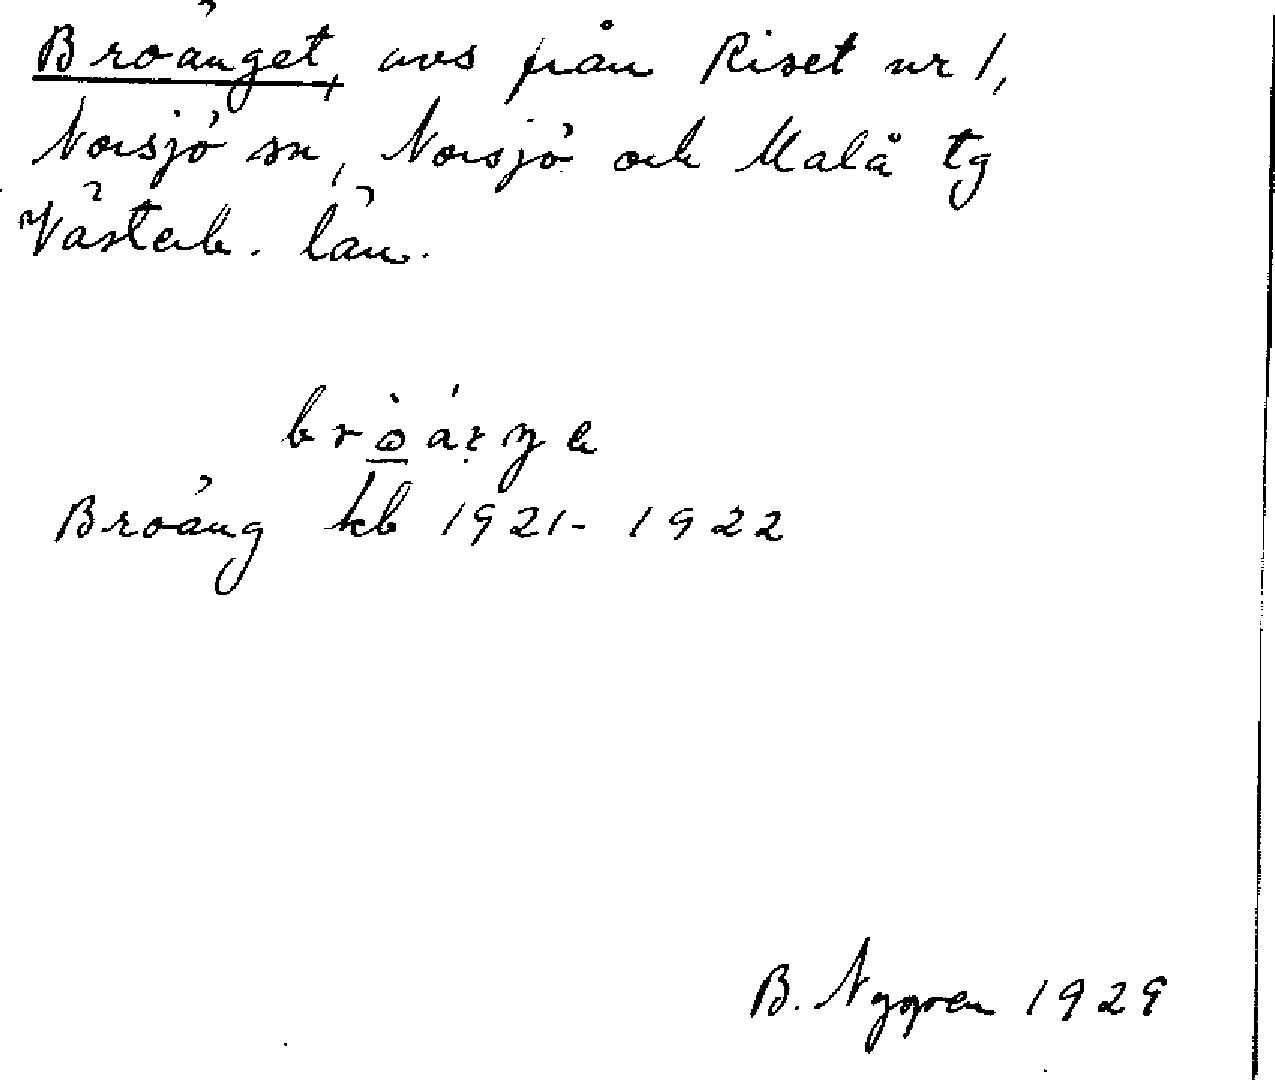 Broänget, avs från Riset nr 1,
Norsjö sn, Norsjö och Malå tg
Västerb. län.
Broäng kb 1921-1922
B. Nygren 1929